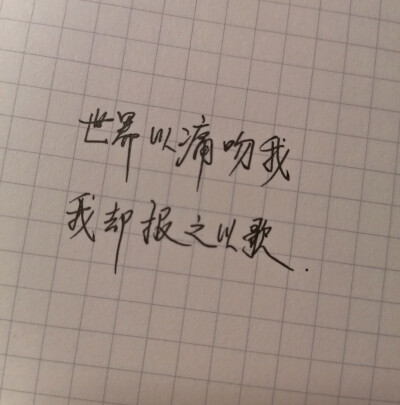 世界以痛吻我
我却报之以歌.